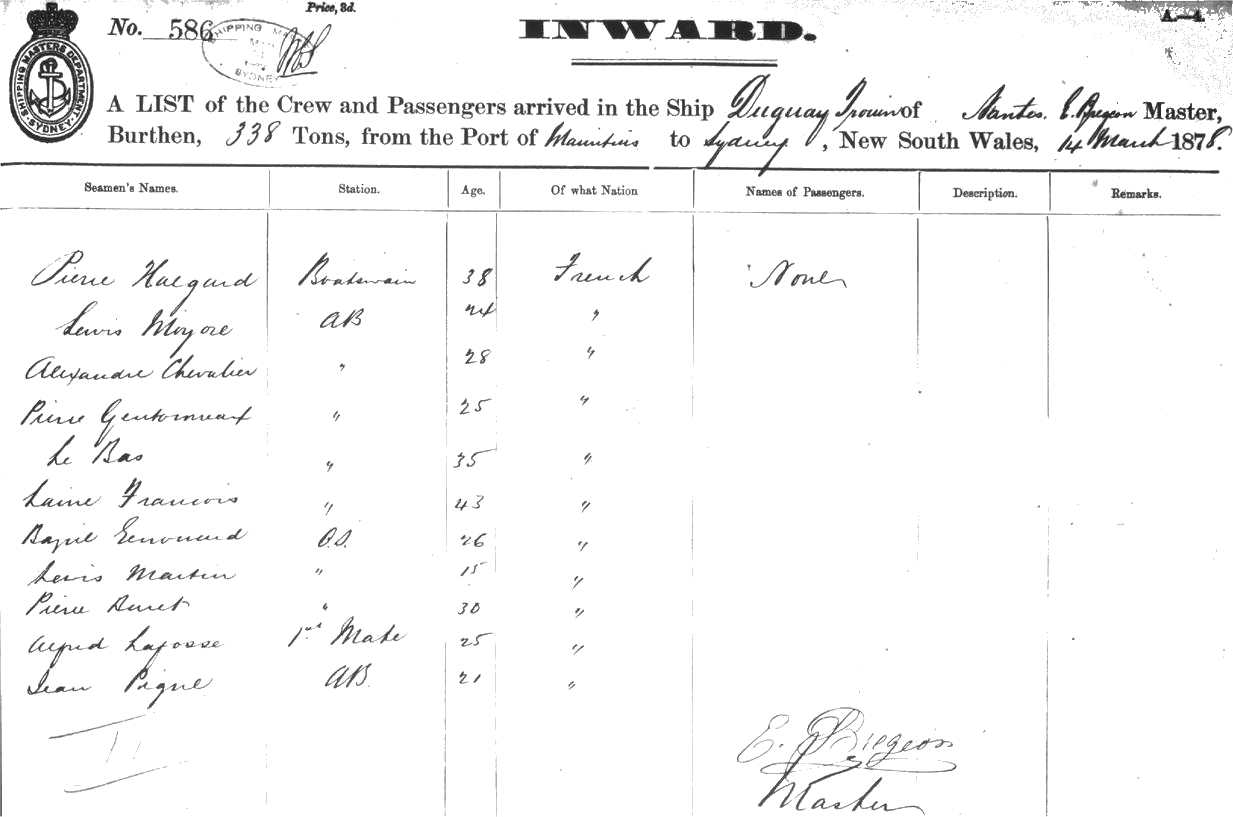 Price, 3d.
No. 586
SHIPPING MA
SYDNEY
INWARD.
A—4
SHIPPING MASTERS DEPARTMENT. SYDNEY.
A LIST of the Crew and Passengers arrived in the Ship Duguay Trouin of Nantes. E. Bregeon Master,
Burthen, 338 Tons, from the Port of Mauritius to Sydney, New South Wales, 14 March 1878.
Seamen's Names. Station. Age. Of what Nation Names of Passengers. Description. Remarks.
Pierre Halgard Boatswain 38 French None
Lewis Moyore AB 24 "
Alexandre Chevalier " 28 "
Pierre " 25 "
Le Bas " 35 "
Laine Francois " 43 "
O.S. 26 "
Lewis Martin " 15 "
Pierre " 30 "
Alfred Lafosse 1st Mate 25 "
Jean AB. 21 "
E. Bregeon
Master